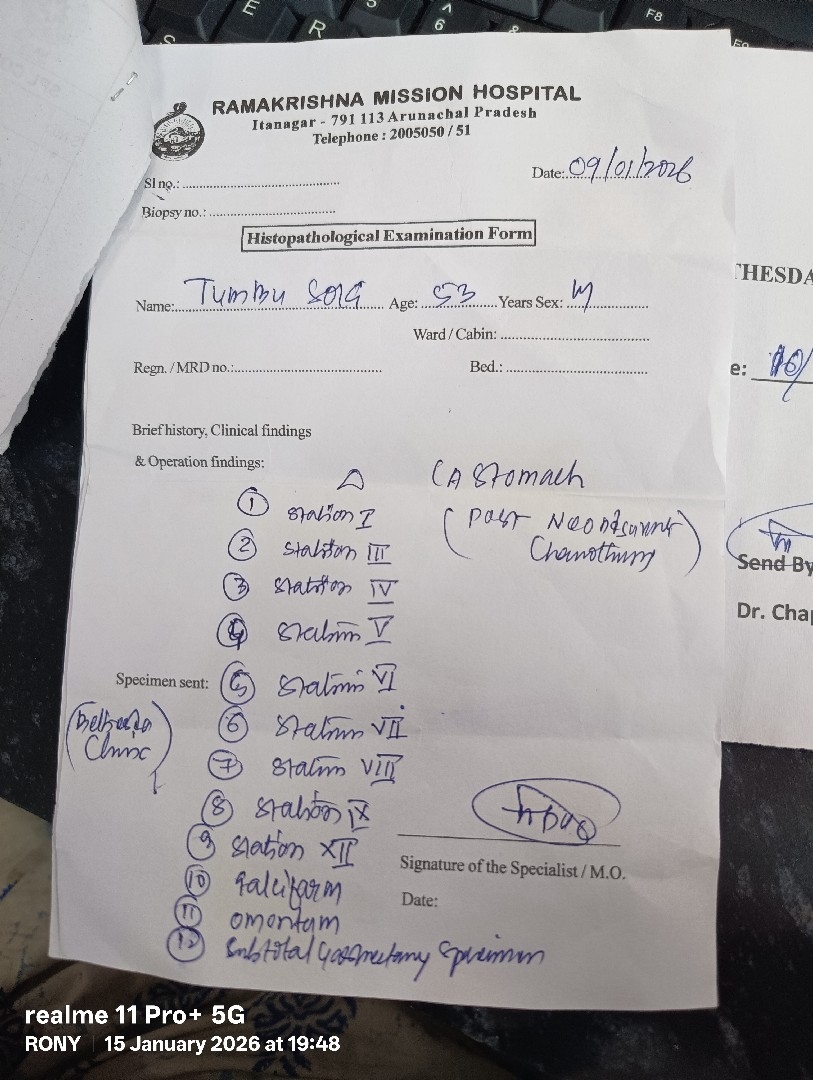 E
R
6
F8
RAMAKRISHNA MISSION HOSPITAL
Itanagar - 791 113 Arunachal Pradesh
Telephone : 2005050 / 51
Sl no.:
Date: 09/01/2026
Biopsy no.:
Histopathological Examination Form
Name: Age: 53 Years Sex: M
Ward / Cabin:
Regn. / MRD no.: Bed.:
Brief history, Clinical findings
& Operation findings:
△ CA Stomach
① Station I
(Post
② Station III
③ Station IV
④ Station V
Specimen sent: ⑤ Station VI
⑥ Station VII
Clinic
⑦ Station VIII
⑧ Station IX
⑨ Station XII
⑩ Falcifarm
⑪ omentam
⑫ Subtotal Gastrectomy Specimen
Signature of the Specialist / M.O.
Date:
THESDA
e: 10/
Send By
Dr. Cha
realme 11 Pro+ 5G
RONY | 15 January 2026 at 19:48